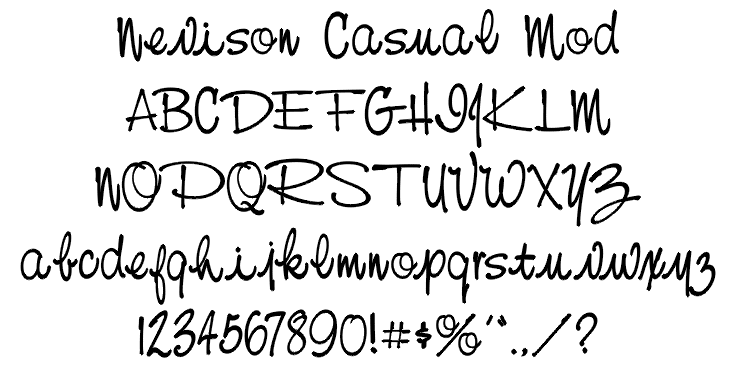 Nevison Casual Mod
ABCDEFGHIJKLM
NOPQRSTUVWXYZ
abcdefghijklmnopqrstuvwxyz
1234567890!#$%'".,/?